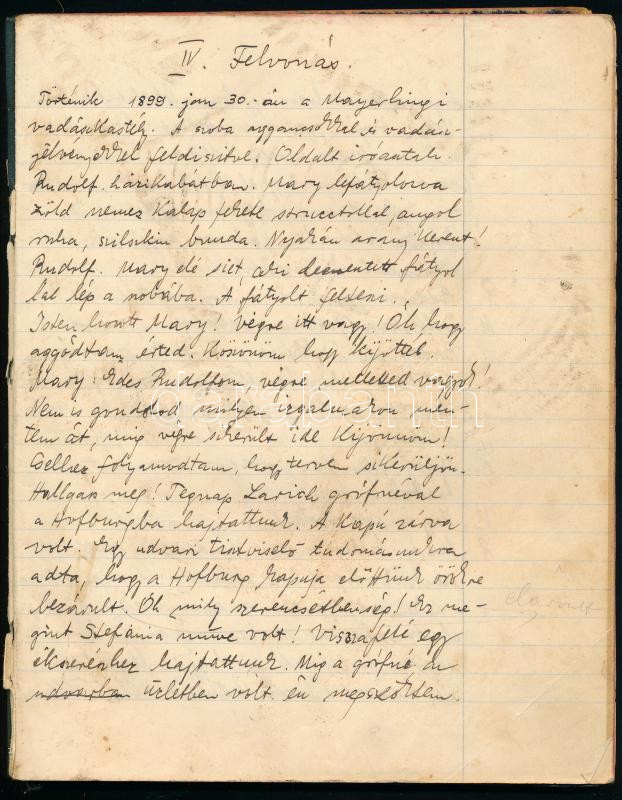 IV. Felvonás.
Történik 1899. jan 30.-án a Mayerlingi
vadászkastély. A szoba agancsokkal és vadász-
jelvényekkel feldiszitve. Oldalt iróasztal.
Rudolf házikabátban. Mary lefátyolozva
zöld nemez kalap fekete strucctollal, angol
ruha, szilszkin bunda. Nyakán arany kereszt!
Rudolf. Mary elé siet, aki fátyol
lal lép a szobába. A fátyolt felteszi.
Isten hozott Mary! Végre itt vagy! Óh, hogy
aggódtam érted. Köszönöm hogy kijöttél.
Mary: Édes Rudolfom, végre melletted vagyok!
Nem is gondolod milyen izgalmakon men-
tem át, mig végre sikerült ide kijönnöm!
Cselhez folyamodtam, hogy tervem sikerüljön.
Hallgass meg! Tegnap Larich grófnéval
a Hofburgba hajtattunk. A kapú zárva
volt. Egy udvari tisztviselő tudomásunkra
adta, hogy a Hofburg kapuja előttünk örökre
bezárult. Óh mily szerencsétlenség! Ez me-
gint Stefánia műve volt! Visszafelé egy
ékszerészhez hajtattunk. Mig a grófné az
udvarban üzletben volt. én megszöktem.
elárult
darabanth